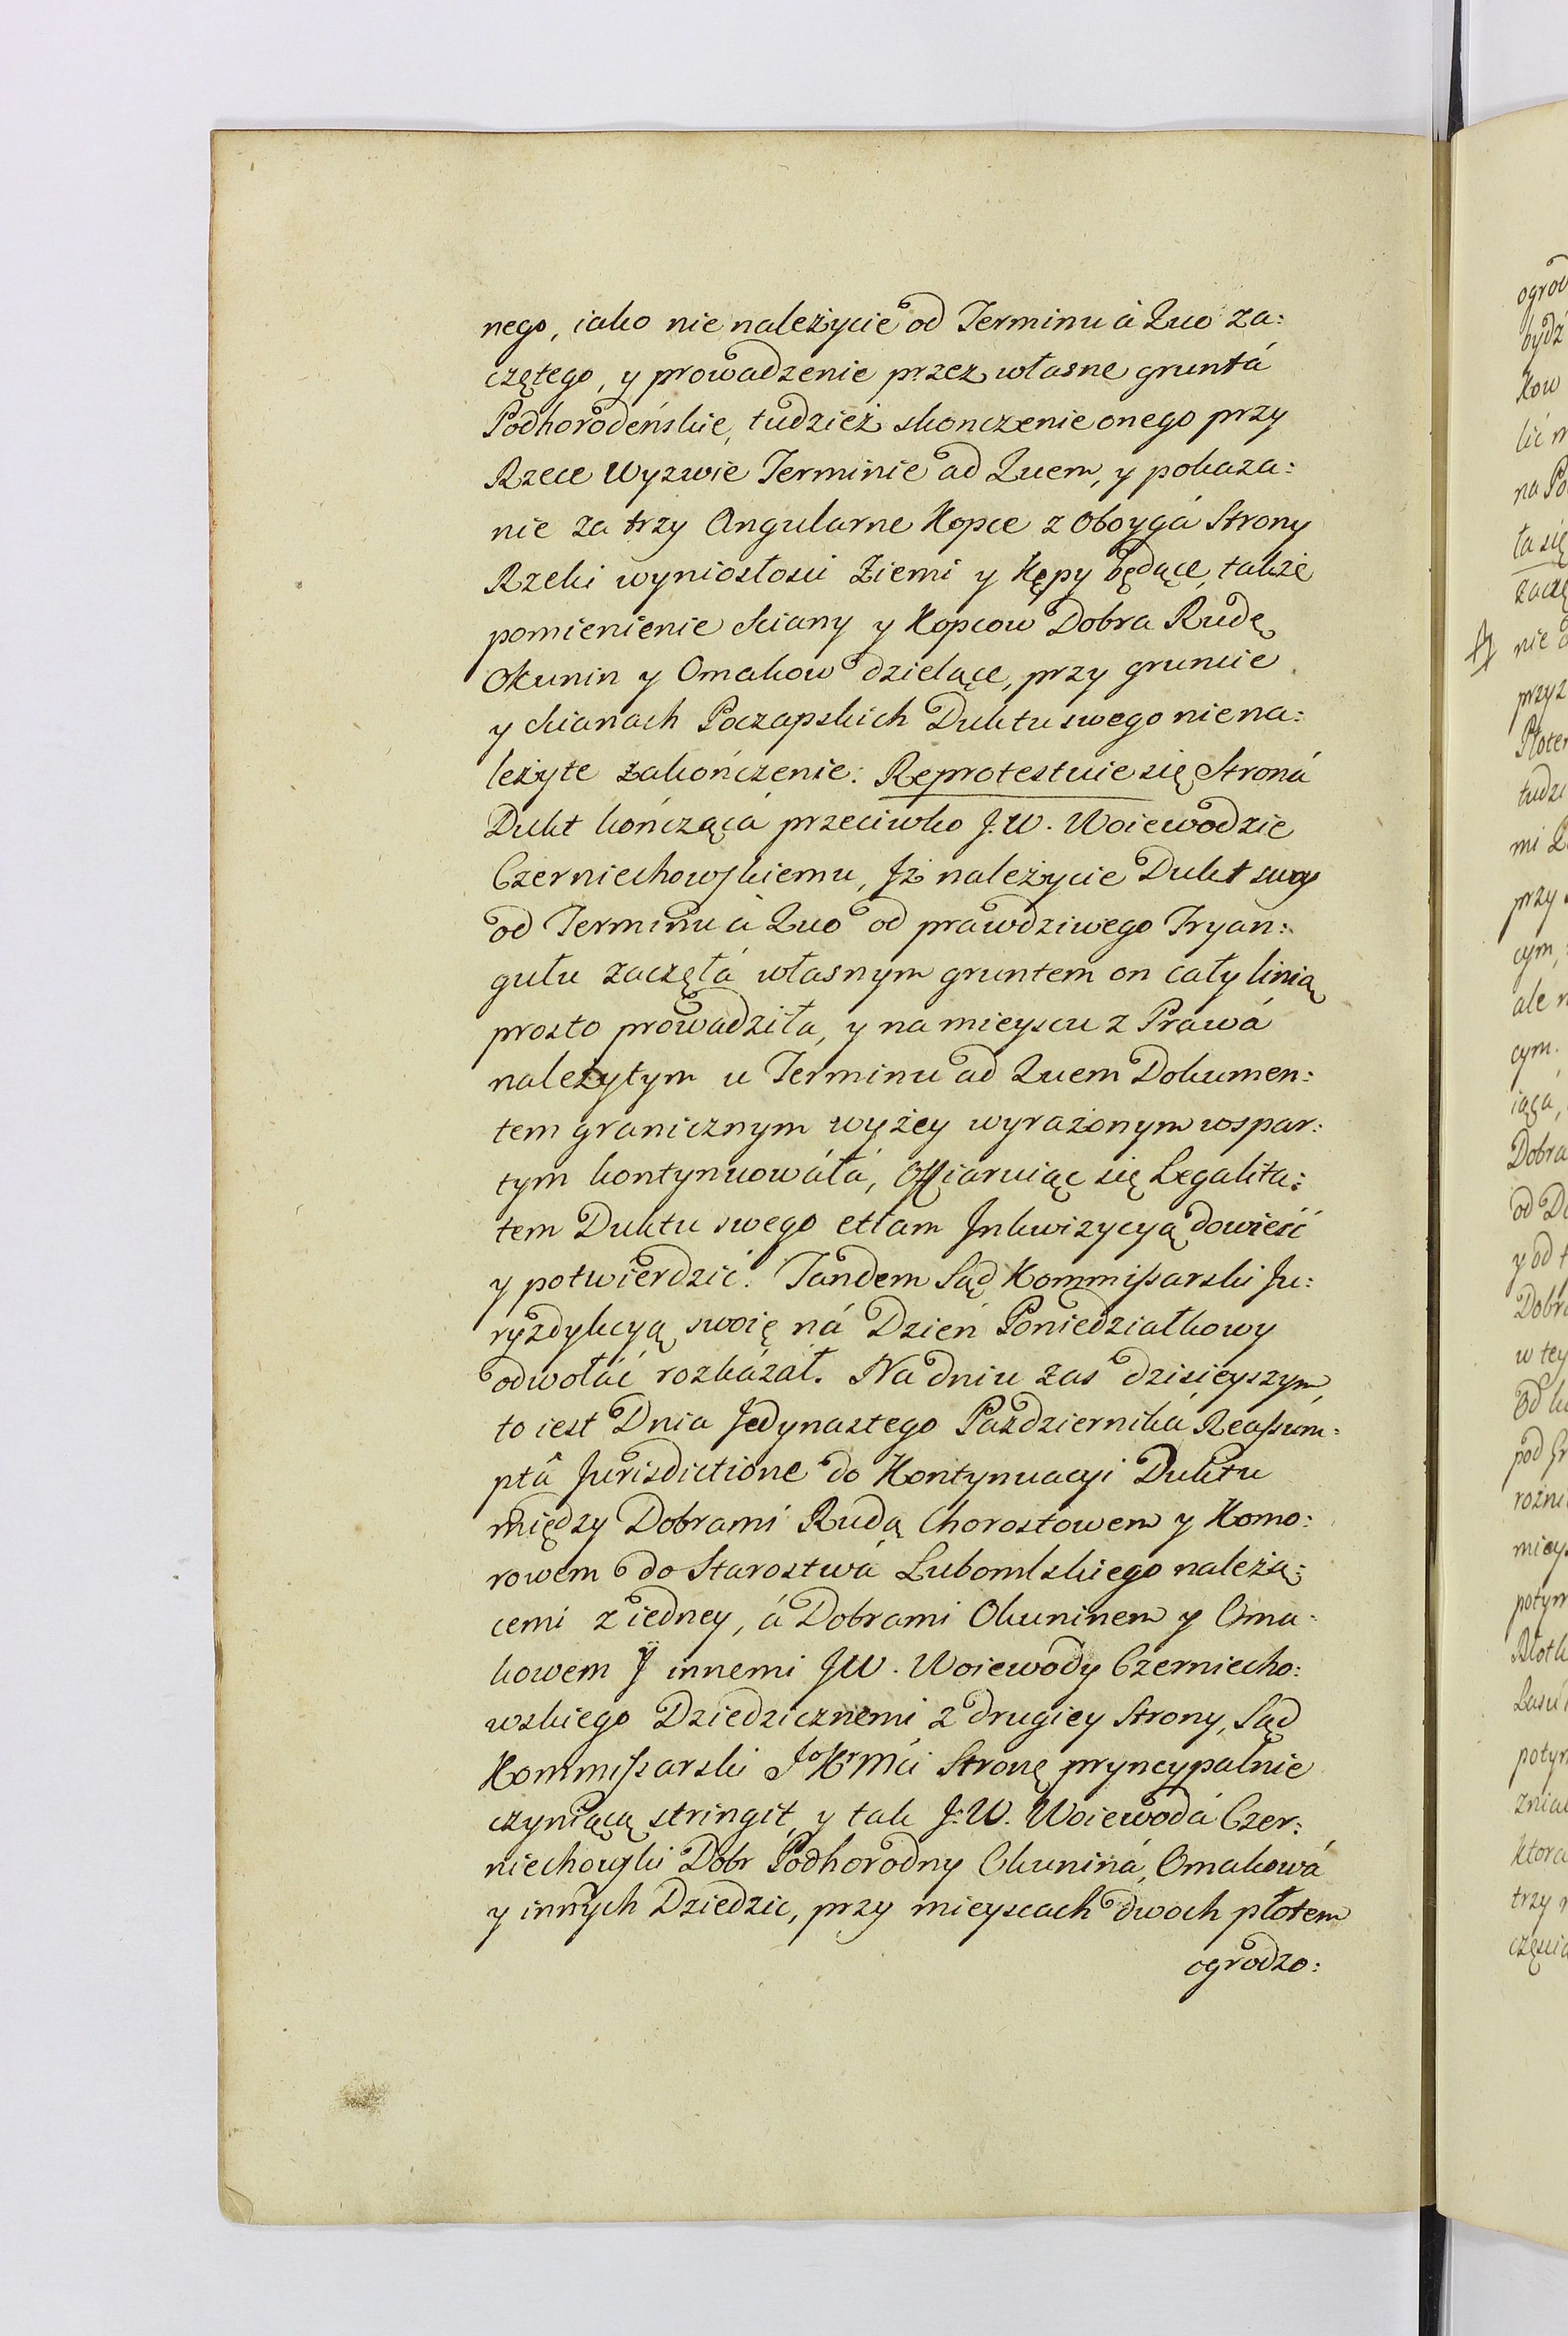 nego, iako nie należycie od Terminu à Quo za:
czętego, y prowadzenie przez własne gruntá
Podhorodeńskie, tudzież skonczenie onego przy
Rzece Wyzwie Terminie ad Quem, y pokaza:
nie za trzy Angularne Kopce z oboygá Strony
Rzeki wyniosłosci Ziemi y Kępy będące, także
pomienienie sciany y Kopcow Dobra Rudę
Okunin y Omakow dzielące, przy gruncie
y scianach Poczapskich Duktu swego niena:
leżyte zakończenie: Reprotestuie się Stroná
Dukt kończącá przeciwko J.W. Woiewodzie
Czerniechowskiemu, Jż należycie Dukt swoy
od Terminu à Quo od prawdziwego Tryan:
gułu zaczęłá własnym gruntem on cały linią
prosto prowadziła, y na mieyscu z Prawá
należytym u Terminu ad Quem Dokumen:
tem granicznym wyżey wyrażonym wspar:
tym kontynuowáłá, offiaruiąc się Legalita:
tem Duktu swego etiam Jnkwizycyą dowieść
y potwierdzić. Tandem Sąd Kommissarski Ju:
ryzdykcyą swoię ná Dzień Poniedziałkowy
odwołáć rozkázał. Na dniu zas dzisieyszym
to iest Dnia Jedynastego Pazdzierniká Reassum:
ptâ Jurisdictione do Kontynuacyi Duktu
między Dobrami Rudą Chorostowem y Komo:
rowem do Starostwá Lubomlskiego należą:
cemi z iedney, á Dobrami Okuninem y Oma:
kowem Y innemi JW. Woiewody Czerniecho:
wskiego Dziedzicznemi z drugiey Strony, Sąd
Kommissarski JoKrMci Stronę pryncypalnie
czyniącą stringit, y tak J.W. Woiewodá Czer:
niechowski Dobr Podhorodny Okuniná, Omakowá
y innych Dziedzic, przy mieyscach dwoch płotem
ogrodzo: